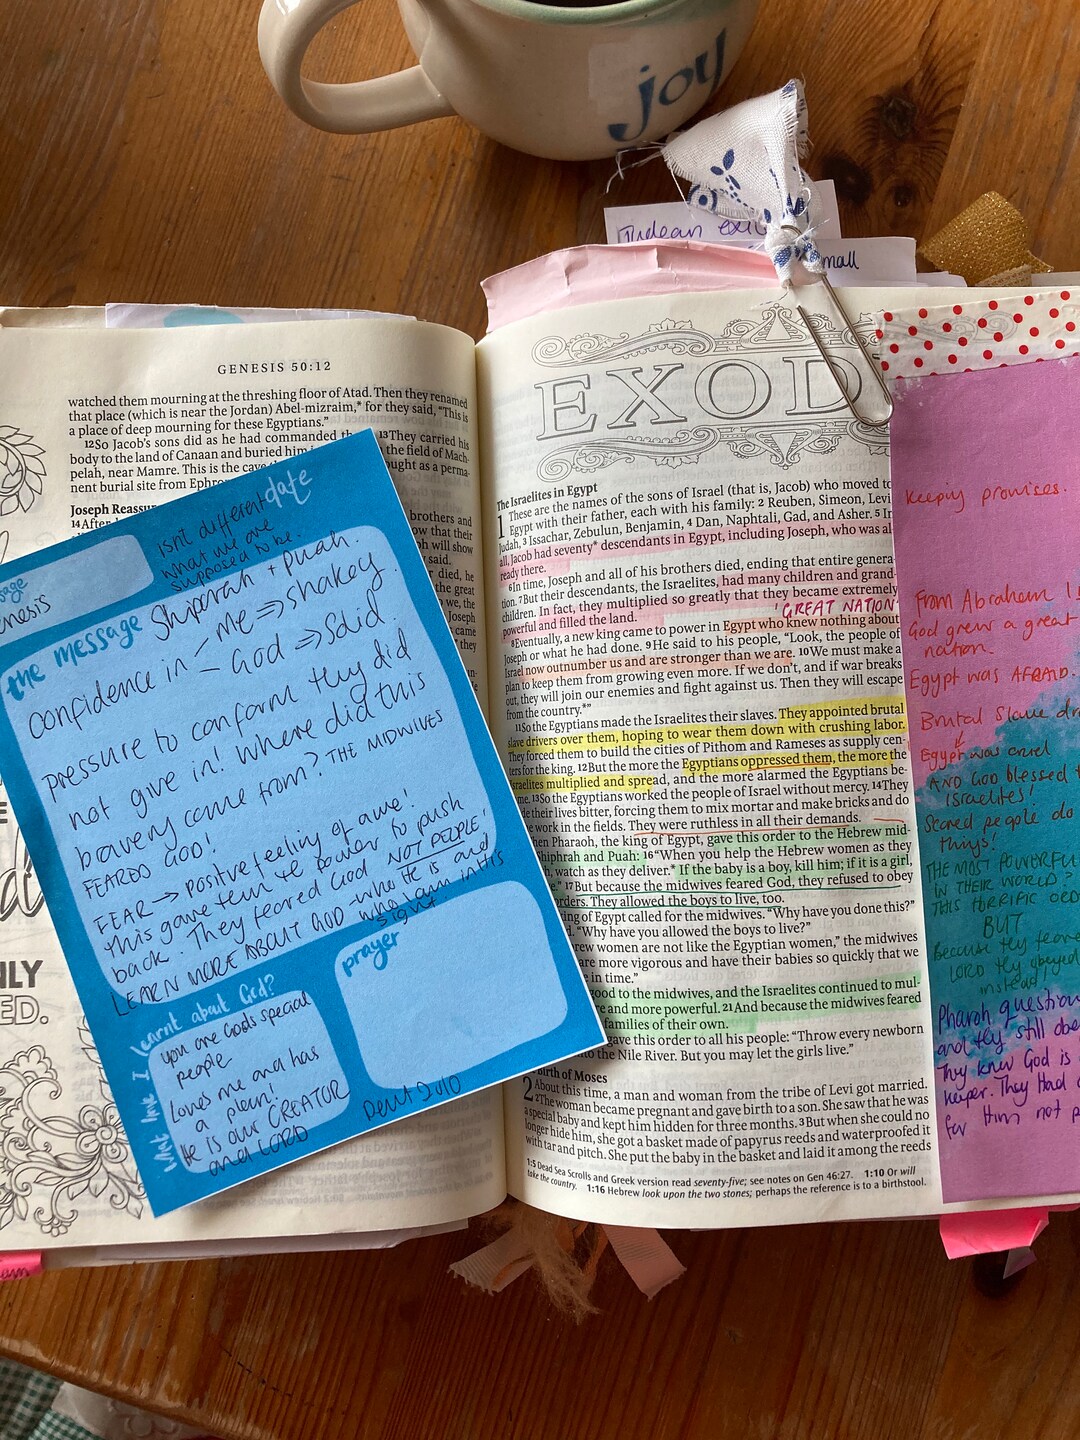 joy
Judean
mall
GENESIS 50:12
watched them mourning at the threshing floor of Atad. Then they renamed
that place (which is near the Jordan) Abel-mizraim,* for they said, "This is
a place of deep mourning for these Egyptians."
12So Jacob's sons did as he had commanded 13They carried his
body to the land of Canaan and buried him the field of Mach-
pelah, near Mamre. This is the cave ought as a perma-
nent burial site from Ephro
Joseph Reassur
14After
brothers and
ow that their
ph will show
said.
r died, he
the great
we, the
Joseph
came
they
date
isn't different
what we are
supposed to be.
enesis
the message Shiprah + puah.
confidence in < me ⇒ shakey.
God ⇒ Solid.
pressure to conform they did
not give in! Where did this
bravery come from? THE MIDWIVES
FEARDO GOD!
FEAR → positive feeling of awe!
this gave them the power to push
back. They feared God NOT PEOPLE!
LEARN MORE ABOUT GOD - who He is and
who I am in His
sight
What have I learnt about God?
you are Gods special
people
Loves me and has
a plan!
He is our CREATOR
and LORD
prayer
NLY
ED.
EXOD
The Israelites in Egypt
1 These are the names of the sons of Israel (that is, Jacob) who moved to
Egypt with their father, each with his family: 2 Reuben, Simeon, Levi
Judah, 3 Issachar, Zebulun, Benjamin, 4 Dan, Naphtali, Gad, and Asher. 5 In
all, Jacob had seventy* descendants in Egypt, including Joseph, who was al-
ready there.
6In time, Joseph and all of his brothers died, ending that entire genera-
tion. 7But their descendants, the Israelites, had many children and grand-
children. In fact, they multiplied so greatly that they became extremely
powerful and filled the land.
'GREAT NATION'
8Eventually, a new king came to power in Egypt who knew nothing about
Joseph or what he had done. 9He said to his people, "Look, the people of
Israel now outnumber us and are stronger than we are. 10We must make a
plan to keep them from growing even more. If we don't, and if war breaks
out, they will join our enemies and fight against us. Then they will escape
from the country.*"
11So the Egyptians made the Israelites their slaves. They appointed brutal
slave drivers over them, hoping to wear them down with crushing labor.
They forced them to build the cities of Pithom and Rameses as supply cen-
ters for the king. 12But the more the Egyptians oppressed them, the more the
sraelites multiplied and spread, and the more alarmed the Egyptians be-
me. 13So the Egyptians worked the people of Israel without mercy. 14They
de their lives bitter, forcing them to mix mortar and make bricks and do
e work in the fields. They were ruthless in all their demands.
hen Pharaoh, the king of Egypt, gave this order to the Hebrew mid-
Shiphrah and Puah: 16"When you help the Hebrew women as they
h, watch as they deliver.* If the baby is a boy, kill him; if it is a girl,
e." 17But because the midwives feared God, they refused to obey
orders. They allowed the boys to live, too.
ing of Egypt called for the midwives. "Why have you done this?"
d. "Why have you allowed the boys to live?"
rew women are not like the Egyptian women," the midwives
are more vigorous and have their babies so quickly that we
e in time."
good to the midwives, and the Israelites continued to mul-
e and more powerful. 21And because the midwives feared
families of their own.
gave this order to all his people: "Throw every newborn
to the Nile River. But you may let the girls live."
Birth of Moses
2 About this time, a man and woman from the tribe of Levi got married.
2The woman became pregnant and gave birth to a son. She saw that he was
a special baby and kept him hidden for three months. 3But when she could no
longer hide him, she got a basket made of papyrus reeds and waterproofed it
with tar and pitch. She put the baby in the basket and laid it among the reeds
1:5 Dead Sea Scrolls and Greek version read seventy-five; see notes on Gen 46:27. 1:10 Or will
take the country. 1:16 Hebrew look upon the two stones; perhaps the reference is to a birthstool.
Keeping promises.
From Abraham
God grew a great
nation.
Egypt was AFRAID.
Brutal Slave dr
Egypt was cruel
AND GOD blessed t
Israelites!
Scared people do
things!
THE MOST POWERFUL
IN THEIR WORLD?
THIS HORRIFIC ORD
BUT
Because they feare
LORD they obeyed
instead
Pharoh question
and they still obe
They knew God is
keeper. They Had
for Him not p